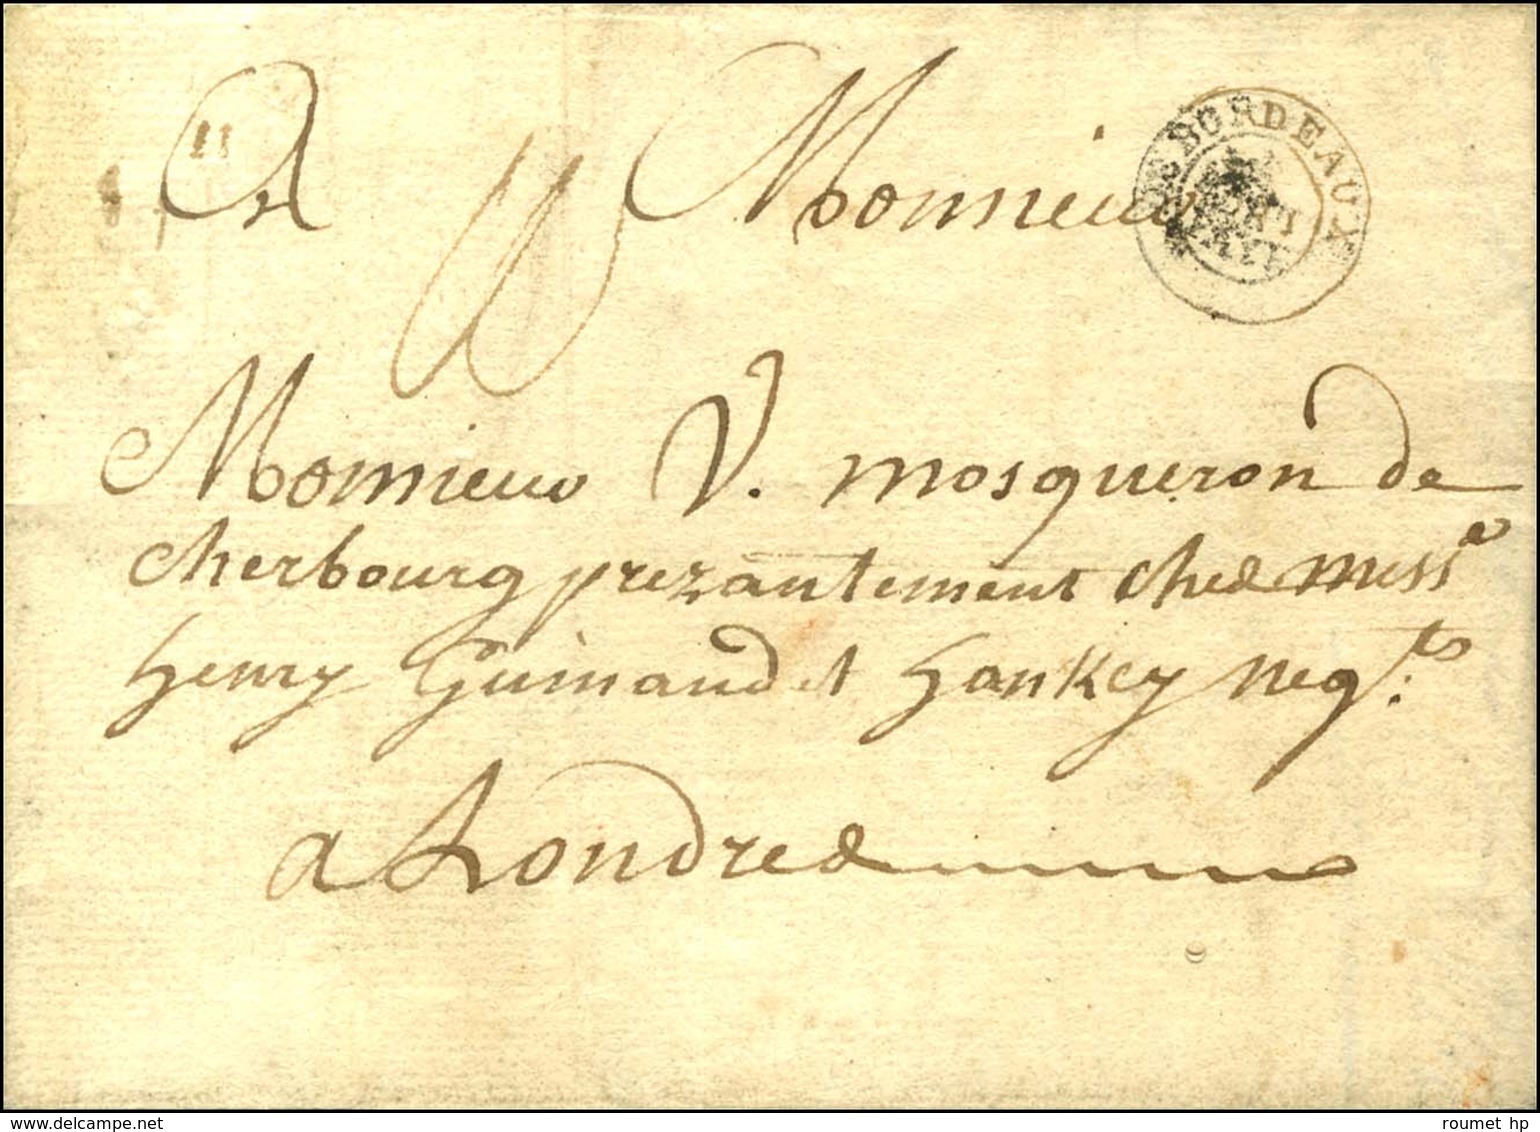 A Monsieur
BORDEAUX
Monsieur V. mosqueron de
cherbourg prezantement ched mess^e
henry Guinaud et hankey neg^ts.
a Londred
www.delcampe.net
roumet hp